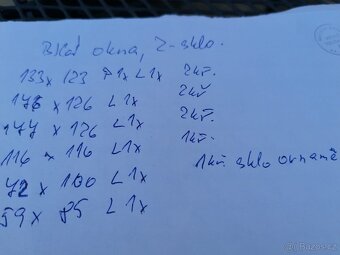 Bílá okna, 2-sklo.
133x 123 P1x L1x 2kř.
176 x 126 L1x 2kř
177 x 126 L1x 2kř.
116 x 116 L1x 1kř.
72 x 100 L1x 1kř sklo ornamě
59 x 85 L1x
Bazos.cz